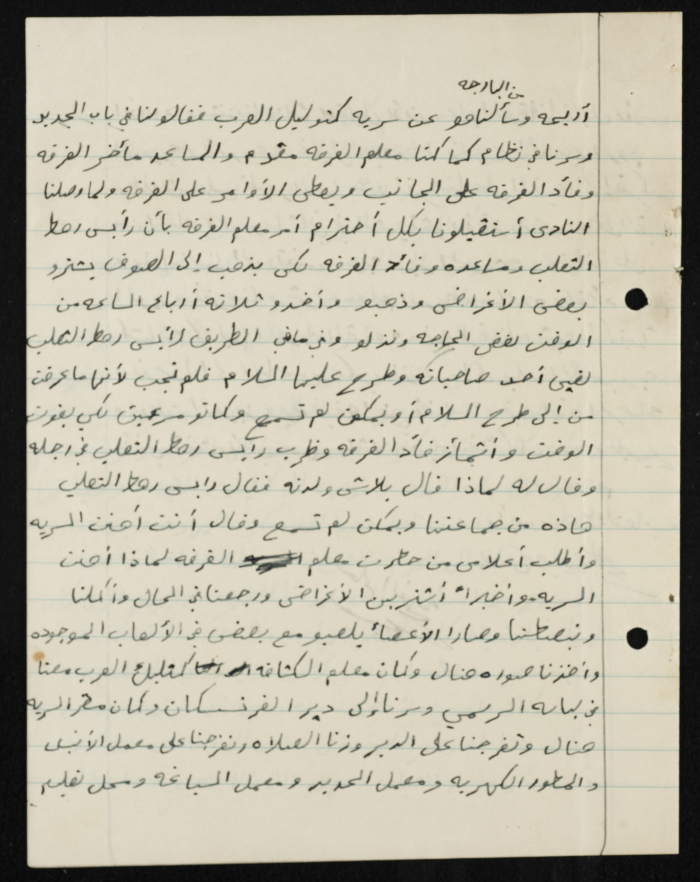 من البارحه
أربعه وسألناهو عن سريه كتوليك العرب فقالو لنا في باب الجديد
وسرنا في نظام كما كنا معلم الفرقه مقدم والمساعد مأخر الفرقه
وقائد الفرقه على الجانب ويعطى الأوامر على الفرقه ولما وصلنا
النادى أستقبلونا بكل أحترام أمر معلم الفرقه بأن رأيس رهط
التعلب ومساعده وقائد الفرقه لكى يذهب إلى الصوف يشترو
بعض الأغراض وذهبو وأخدو ثلاثه أرباع الساعه من
الوقت لقضى الحاجه ونزلو وفي الطريق رأيس رهط التعلب
لقيى أحد صاحباته وطرح عليها السلام فلم تجب لأنها ما عرفت
من إلى طرح السلام أو يمكن لم تسمع وكانو مسرعين لكى يفوت
الوقت و أشمأز قائد الفرقه وظرب رايس رهط التعلب في رجله
وقال له لماذا قال بلاش ولدنه فقال رايس رهط التعلب
هاذه من جماعتنا ويمكن لم تسمع وقال أنت أهنت السريه
وأطلب أعلامى من حظرت معلم الفرقه لماذا أهنت
السريه وأخيراً أشترين الأغراض ورجعنا في الحال وأكلنا
ونبصطنا وصارا الأعضاء يلعبو مع بعضى في الألعاب الموجوده
وأخذنا صوره هناك وكان معلم الكشافه كتوليك العرب معنا
في لباسه الرسمي وسرنا إلى دير الفرنسسكان وكان مقر السريه
هناك وتفرجنا على الدير وزنا الصلاه وتفرجنا على معمل الأنبيذ
والمطور الكهربه ومعمل الحديد و معمل السباغه ومحل تعليم